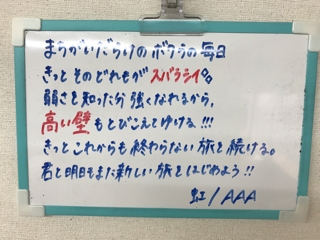 まちがいだらけのボクラの毎日
きっとそのどれもがスバラシイ
弱さを知った分強くなれるから、
高い壁もとびこえてゆける!!!
きっとこれからも終わらない旅を続ける。
君と明日もまた新しい旅をはじめよう!!
虹/AAA